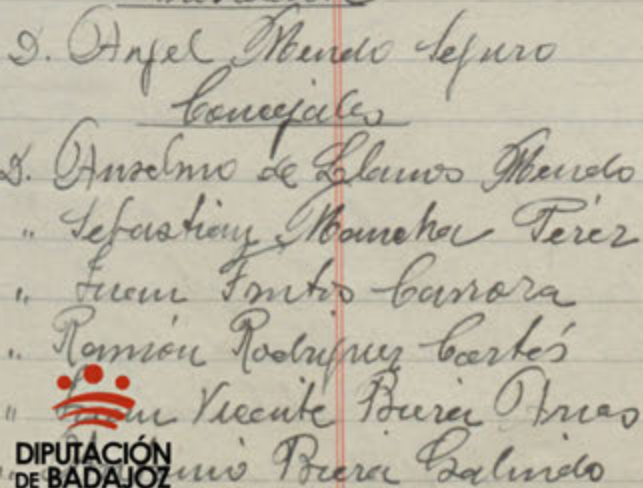 D. Angel Mendo Seguro
Concejales
D. Anselmo de Llanos Mendo
" Sebastián Mancha Pérez
" Juan Frutos
" Ramón Rodriguez Cortés
" Juan Vicente Arias
Galindo
DIPUTACIÓN
DE BADAJOZ